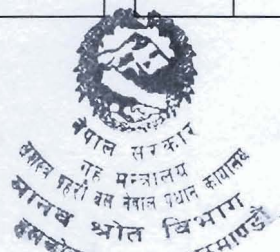 नेपाल सरकार
गृह मन्त्रालय
सशस्त्र प्रहरी बल नेपाल प्रधान कार्यालय
मानव श्रोत विभाग